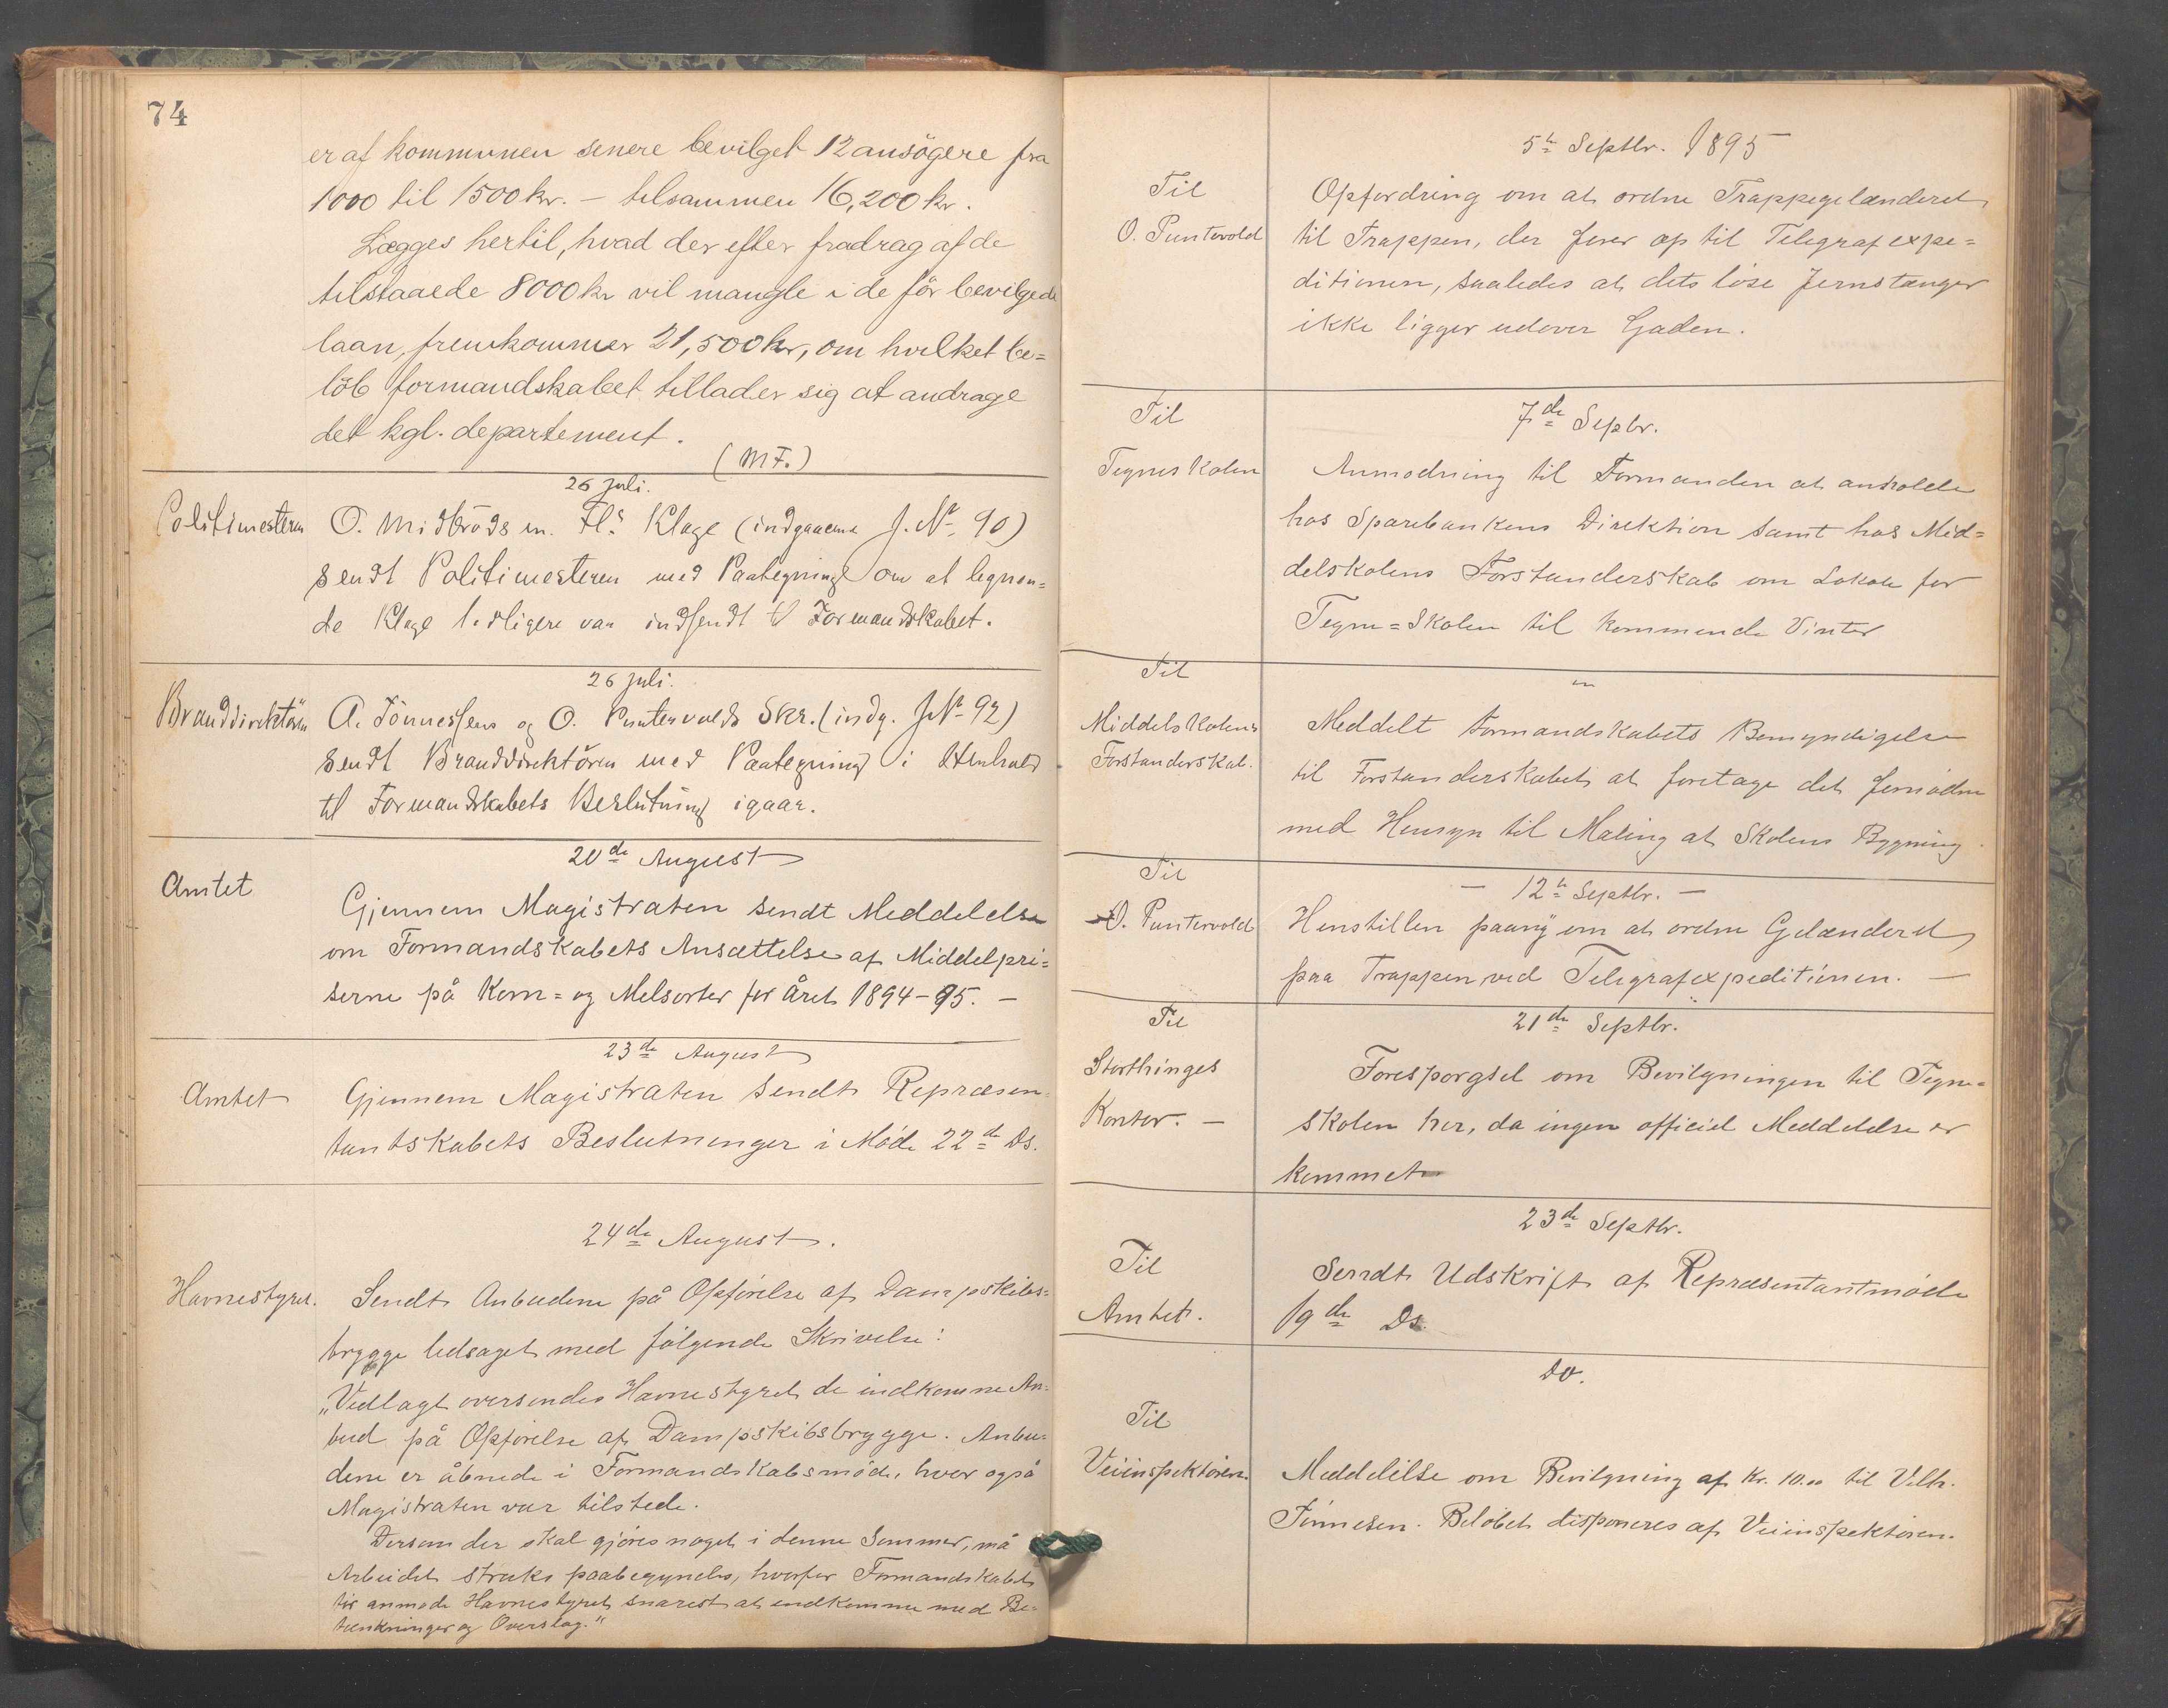 74
er af kommunen senere bevilget 12 ansögere fra
1000 til 1500 kr. – tilsammen 16,200 kr.
Lægges hertil, hvad der efter fradrag af de
tilstaaede 8000 kr vil mangle i de för bevilgede
laan, fremkommer 21,500 kr, om hvilket be=
löb formandskabet tillader sig at andrage
det kgl. departement.
(M F.)
26 Juli.
Politimesteren O. Midbröds m. Fl.s Klage (indgaaende J. No 90)
sendt Politimesteren med Paategning om at lignen-
de Klage tidligere var indsendt til Formandskabet.
26 Juli.
Branddirektören A. Tönnessens og O. Puntervolds Skr. (indg. J No 92)
sendt Branddirektören med Paategning i Henhold
til Formandskabets Beslutning igaar.
20de August
Amtet
Gjennem Magistraten sendt Meddelelse
om Formandskabets Ansættelse af Middelpri=
serne på Korn= og Melsorter for Året 1894–95. –
23de August
Amtet Gjennem Magistraten sendt Repræsen=
tantskabets Beslutninger i Møde 22de Ds.
24de August.
Havnestyret. Sendt Anbudene på Opførelse af Dampskibs=
brygge ledsaget med følgende Skrivelse:
"Vedlagt oversendes Havnestyret de indkomne An=
bud på Opførelse af Dampskibsbrygge. Anbu=
dene er åbnede i Formandskabsmøde, hvor også
Magistraten var tilstede.
Dersom der skal gjøres noget i denne Sommer, må
Arbeidet straks paabegyndes, hvorfor Formandskabet
tør anmode Havnestyret snarest at indkomme med Be=
tænkninger og Overslag."
5te Septbr. 1895
Til
O. Puntervold
Opfordring om at ordne Trappegelænderet
til Trappen, der fører op til Telegrafexpe=
ditionen, saaledes at dets løse Jernstænger
ikke ligger udover Gaden.
7de Sepbr.
Til
Tegneskolen
Anmodning til Formanden at anholde
hos Sparebankens Direktion samt hos Mid=
delskolens Forstanderskab om Lokale for
Tegne=Skolen til kommende Vinter
Til
Middelskolens
Forstanderskab.
Meddelt Formandskabets Bemyndigelse
til Forstanderskabet at foretage det fornødne
med Hensyn til Maling at Skolens Bygning.
– 12te Septbr. –
Til
O. Puntervold
Henstillen paany om at ordne Gelænderet
paa Trappen ved Telegrafexpeditionen. –
21de Septbr.
Til
Storthinges
Kontor. –
Forespørgsel om Bevilgningen til Tegne=
skolen her, da ingen officiel Meddelelse er
kommet
23de Septbr.
Til
Amtet.
Sendt Udskrift af Repræsentantmøde
19de Ds.
Do.
Til
Veiinspektøren.
Meddelelse om Bevilgning af Kr. 10.00 til Vilh.
Tønnesen. Beløbet disponeres af Veiinspektøren.